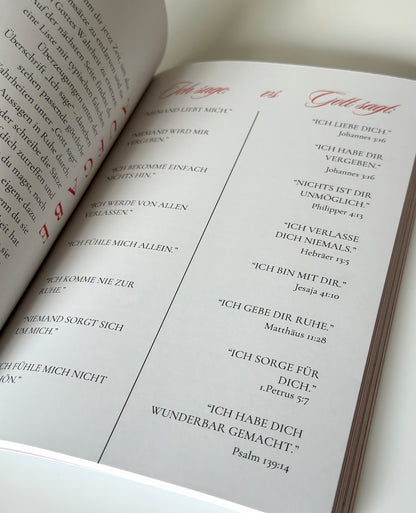 nn dir jetz Zeit, um
Gottes Wahrheit zu
auf der nächsten Seite
eine Liste mit typischen falschen
Überzeugungen, die
Überschrift „Ich sage“,
stehen passende
Wahrheiten unter „Gott sagt
Aussagen in Ruhe durch,
oder schreibe die Sätze
dich zutreffen, und
du magst, noch
eigene dazu
Ich sage: vs. Gott sagt:
NIEMAND LIEBT MICH.”
“NIEMAND WIRD MIR
VERGEBEN.”
“ICH BEKOMME EINFACH
NICHTS HIN.”
“ICH WERDE VON ALLEN
VERLASSEN.”
“ICH FÜHLE MICH ALLEIN.”
“ICH KOMME NIE ZUR
RUHE.”
“NIEMAND SORGT SICH
UM MICH.”
ICH FÜHLE MICH NICHT
“ICH LIEBE DICH.”
Johannes 3:16
“ICH HABE DIR
VERGEBEN.”
Johannes 3:16
“NICHTS IST DIR
UNMÖGLICH.”
Philipper 4:13
“ICH VERLASSE
DICH NIEMALS.”
Hebräer 13:5
“ICH BIN MIT DIR.”
Jesaja 41:10
“ICH GEBE DIR RUHE.”
Matthäus 11:28
“ICH SORGE FÜR
DICH.”
1.Petrus 5:7
“ICH HABE DICH
WUNDERBAR GEMACHT.”
Psalm 139:14